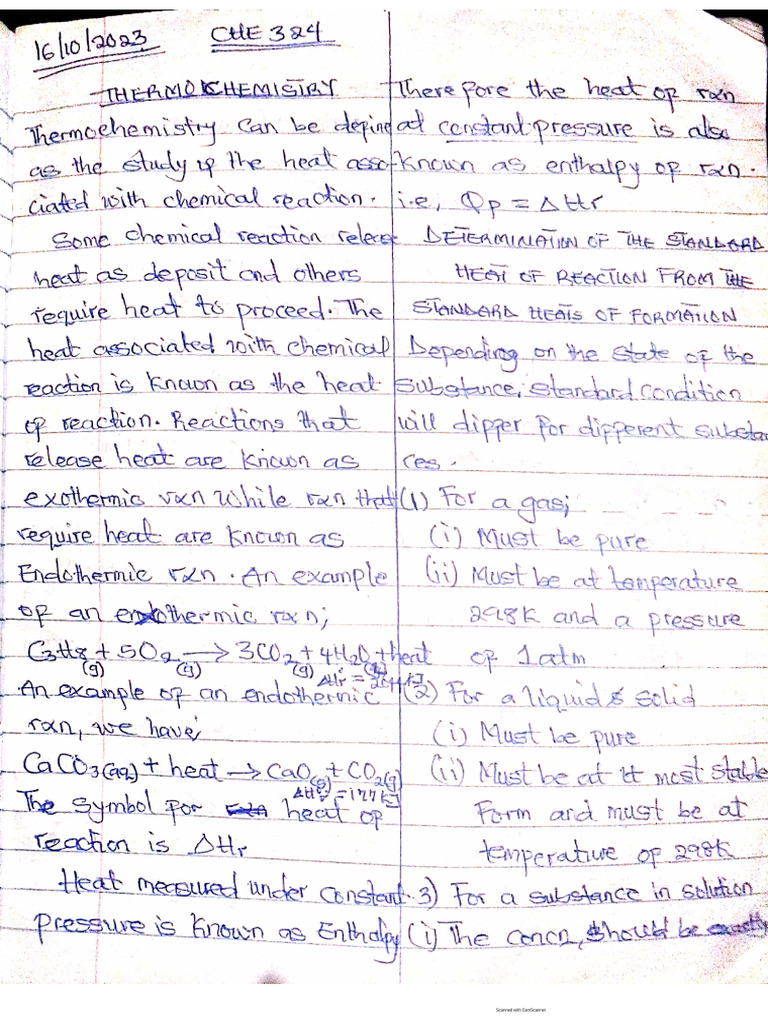 16/10/2023
CHE 324
THERMOCHEMISTRY
Thermochemistry can be define
as the study of the heat asso
ciated with chemical reaction.
Some chemical reaction release
heat as deposit and others
require heat to proceed. The
heat associated with chemical
reaction is known as the heat
of reaction. Reactions that
release heat are known as
exothermic rxn while rxn that
require heat are known as
Endothermic rxn. An example
of an exothermic rxn;
C3H8 + 5O2 → 3CO2 + 4H2O + heat
(g) (g) (g)
An example of an endothermic
rxn, we have
CaCO3(aq) + heat → CaO(s) + CO2(g)
ΔHr = 177kJ
The symbol for heat of
reaction is ΔHr
Heat measured under constant
pressure is known as Enthalpy
Therefore the heat of rxn
at constant pressure is also
known as enthalpy of rxn.
i.e, Qp = ΔHr
DETERMINATION OF THE STANDARD
HEAT OF REACTION FROM THE
STANDARD HEATS OF FORMATION
Depending on the state of the
substance, standard condition
will differ for different substan
ces.
(1) For a gas;
(i) Must be pure
(ii) Must be at temperature
298K and a pressure
of 1 atm
(2) For a liquid & solid
(i) Must be pure
(ii) Must be at it most stable
Form and must be at
temperature of 298K
3) For a substance in solution
(i) The concn, should be exactly
Scanned with CamScanner